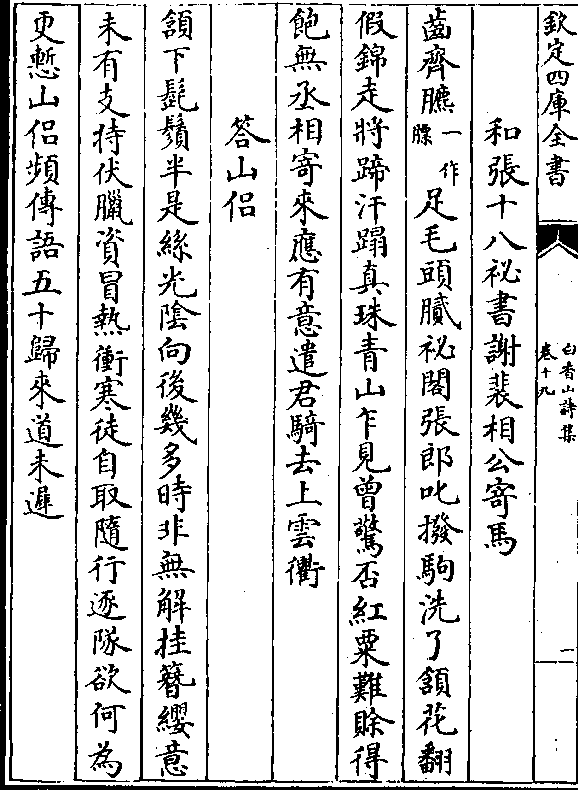 欽定四庫全書
白香山詩集
卷十九
一
和張十八祕書謝裴相公寄馬
齒齊臕一作膘足毛頭膩祕閣張郎叱撥駒洗了頷花翻
假錦走將蹄汗蹋真珠青山乍見曾驚否紅粟難賒得
飽無丞相寄來應有意遣君騎去上雲衢
答山侶
頷下髭鬚半是絲光陰向後幾多時非無解挂簪纓意
未有支持伏臘資冒熱衝寒徒自取隨行逐隊欲何為
更慙山侶頻傳語五十歸來道未遲